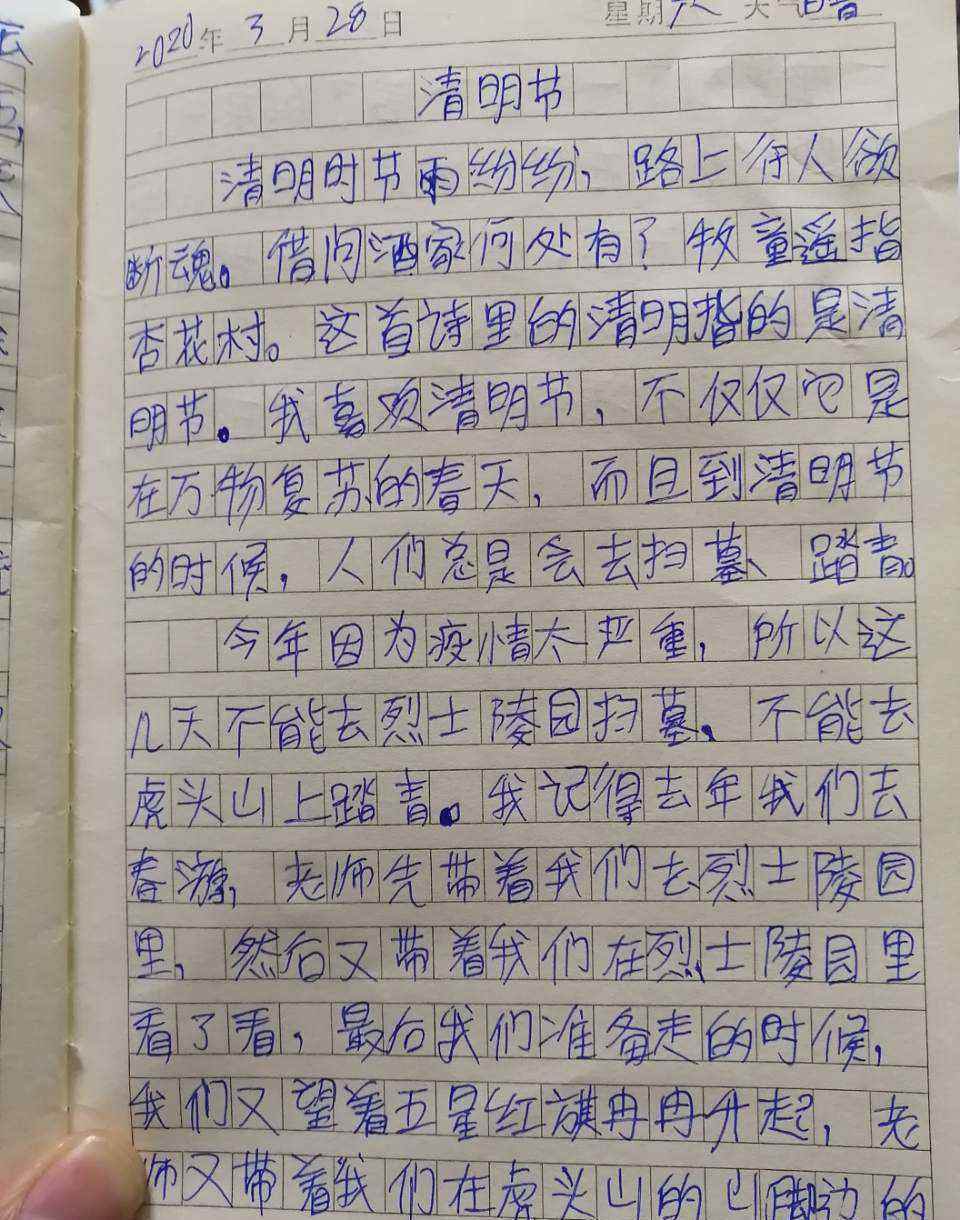 2020年3月28日 星期六 天气晴
清明节
清明时节雨纷纷，路上行人欲
断魂。借问酒家何处有？牧童遥指
杏花村。这首诗里的清明指的是清
明节。我喜欢清明节，不仅仅它是
在万物复苏的春天，而且到清明节
的时候，人们总是会去扫墓、踏青。
今年因为疫情太严重，所以这
几天不能去烈士陵园扫墓、不能去
虎头山上踏青。我记得去年我们去
春游，老师先带着我们去烈士陵园
里，然后又带着我们在烈士陵园里
看了看，最后我们准备走的时候，
我们又望着五星红旗冉冉升起，老
师又带着我们在虎头山的山脚边的